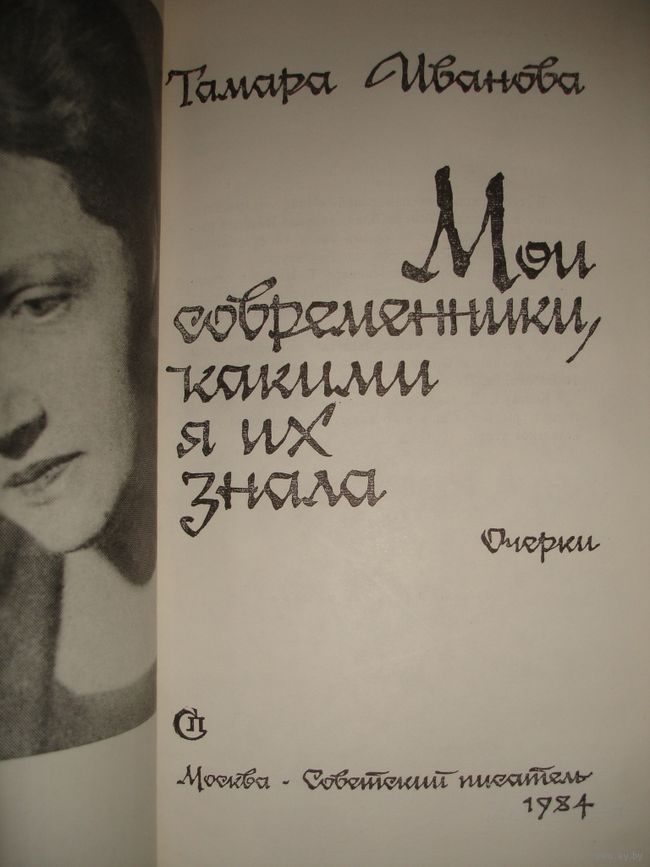 Тамара Иванова
Мои
современники,
какими
я их
знала
Очерки
СП
Москва - Советский писатель
1984